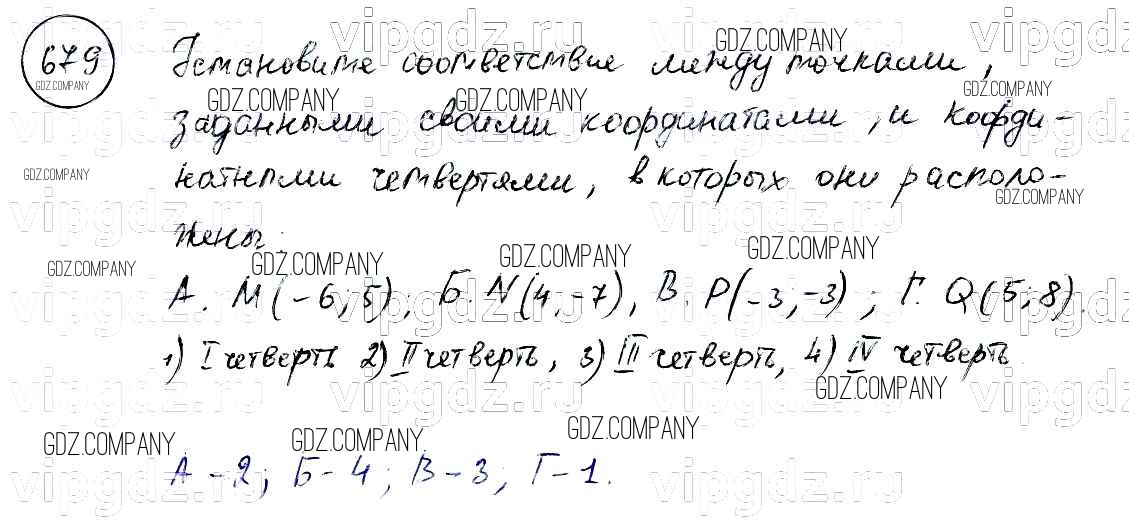 679 Установите соответствие между точками,
заданными своими координатами, и коорди-
натными четвертями, в которых они располо-
жены:
А. M(-6; 5); Б. N(4; -7), В. P(-3; -3); Г. Q(5; 8).
1) I четверть 2) II четверть, 3) III четверть, 4) IV четверть
А-2; Б-4; В-3; Г-1.
GDZ.COMPANY
vipgdz.ru